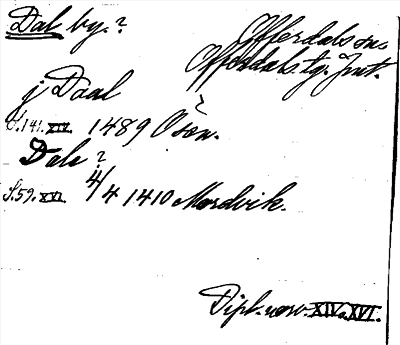 Dal by.?
Offerdals sn.
Offerdals tg. Jmt.
j Daal
S. 141. XIV. 1489 Osen.
Dale?
S. 59. XVI. 4/4 1410 Mordvik.
Dipl. norv. XIV. XVI.